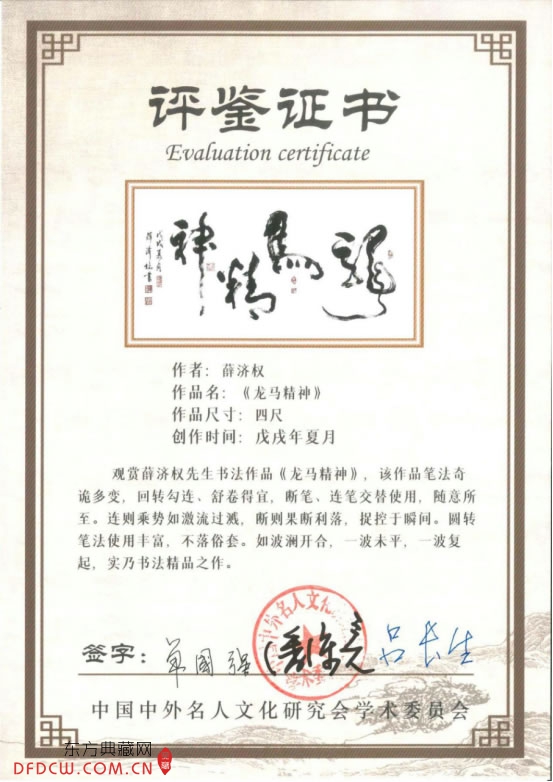 评鉴证书
Evaluation certificate
龍馬精神
戊戌夏月
薛济权书
作者：薛济权
作品名：《龙马精神》
作品尺寸：四尺
创作时间：戊戌年夏月
观赏薛济权先生书法作品《龙马精神》，该作品笔法奇
诡多变，回转勾连、舒卷得宜，断笔、连笔交替使用，随意所
至。连则乘势如激流过溅，断则果断利落，捉控于瞬间。圆转
笔法使用丰富，不落俗套。如波澜开合，一波未平，一波复
起，实乃书法精品之作。
签字：单国强 吕长生
中国中外名人文化研究会学术委员会
东方典藏网
DFDCW.COM.CN